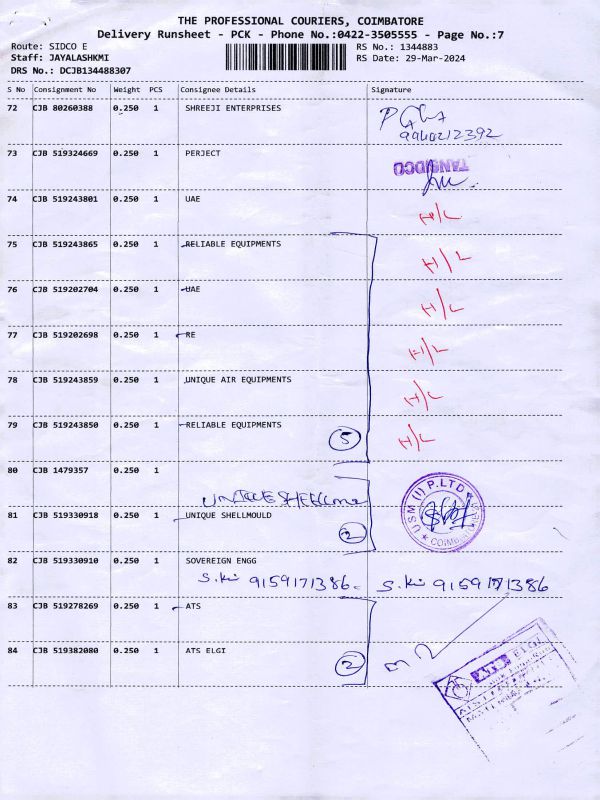 THE PROFESSIONAL COURIERS, COIMBATORE
Delivery Runsheet - PCK - Phone No.:0422-3505555 - Page No.:7
Route: SIDCO E RS No.: 1344883
Staff: JAYALASHKMI RS Date: 29-Mar-2024
DRS No.: DCJB134488307
S No Consignment No Weight PCS Consignee Details Signature
72 CJB 80260388 0.250 1 SHREEJI ENTERPRISES
9940212392
73 CJB 519324669 0.250 1 PERJECT
TANSIDCO
74 CJB 519243801 0.250 1 UAE H/L
75 CJB 519243865 0.250 1 RELIABLE EQUIPMENTS H/L
76 CJB 519202704 0.250 1 UAE H/L
77 CJB 519202698 0.250 1 RE H/L
78 CJB 519243859 0.250 1 UNIQUE AIR EQUIPMENTS H/L
79 CJB 519243850 0.250 1 RELIABLE EQUIPMENTS 5 H/L
80 CJB 1479357 0.250 1
UNIQUE SHELLMO
81 CJB 519330918 0.250 1 UNIQUE SHELLMOULD 2
USM (I) P.LTD
82 CJB 519330910 0.250 1 SOVEREIGN ENGG
S.Ki 9159171386 S.Ki 9159171386
83 CJB 519278269 0.250 1 ATS
84 CJB 519382080 0.250 1 ATS ELGI 2
ATS ELGI